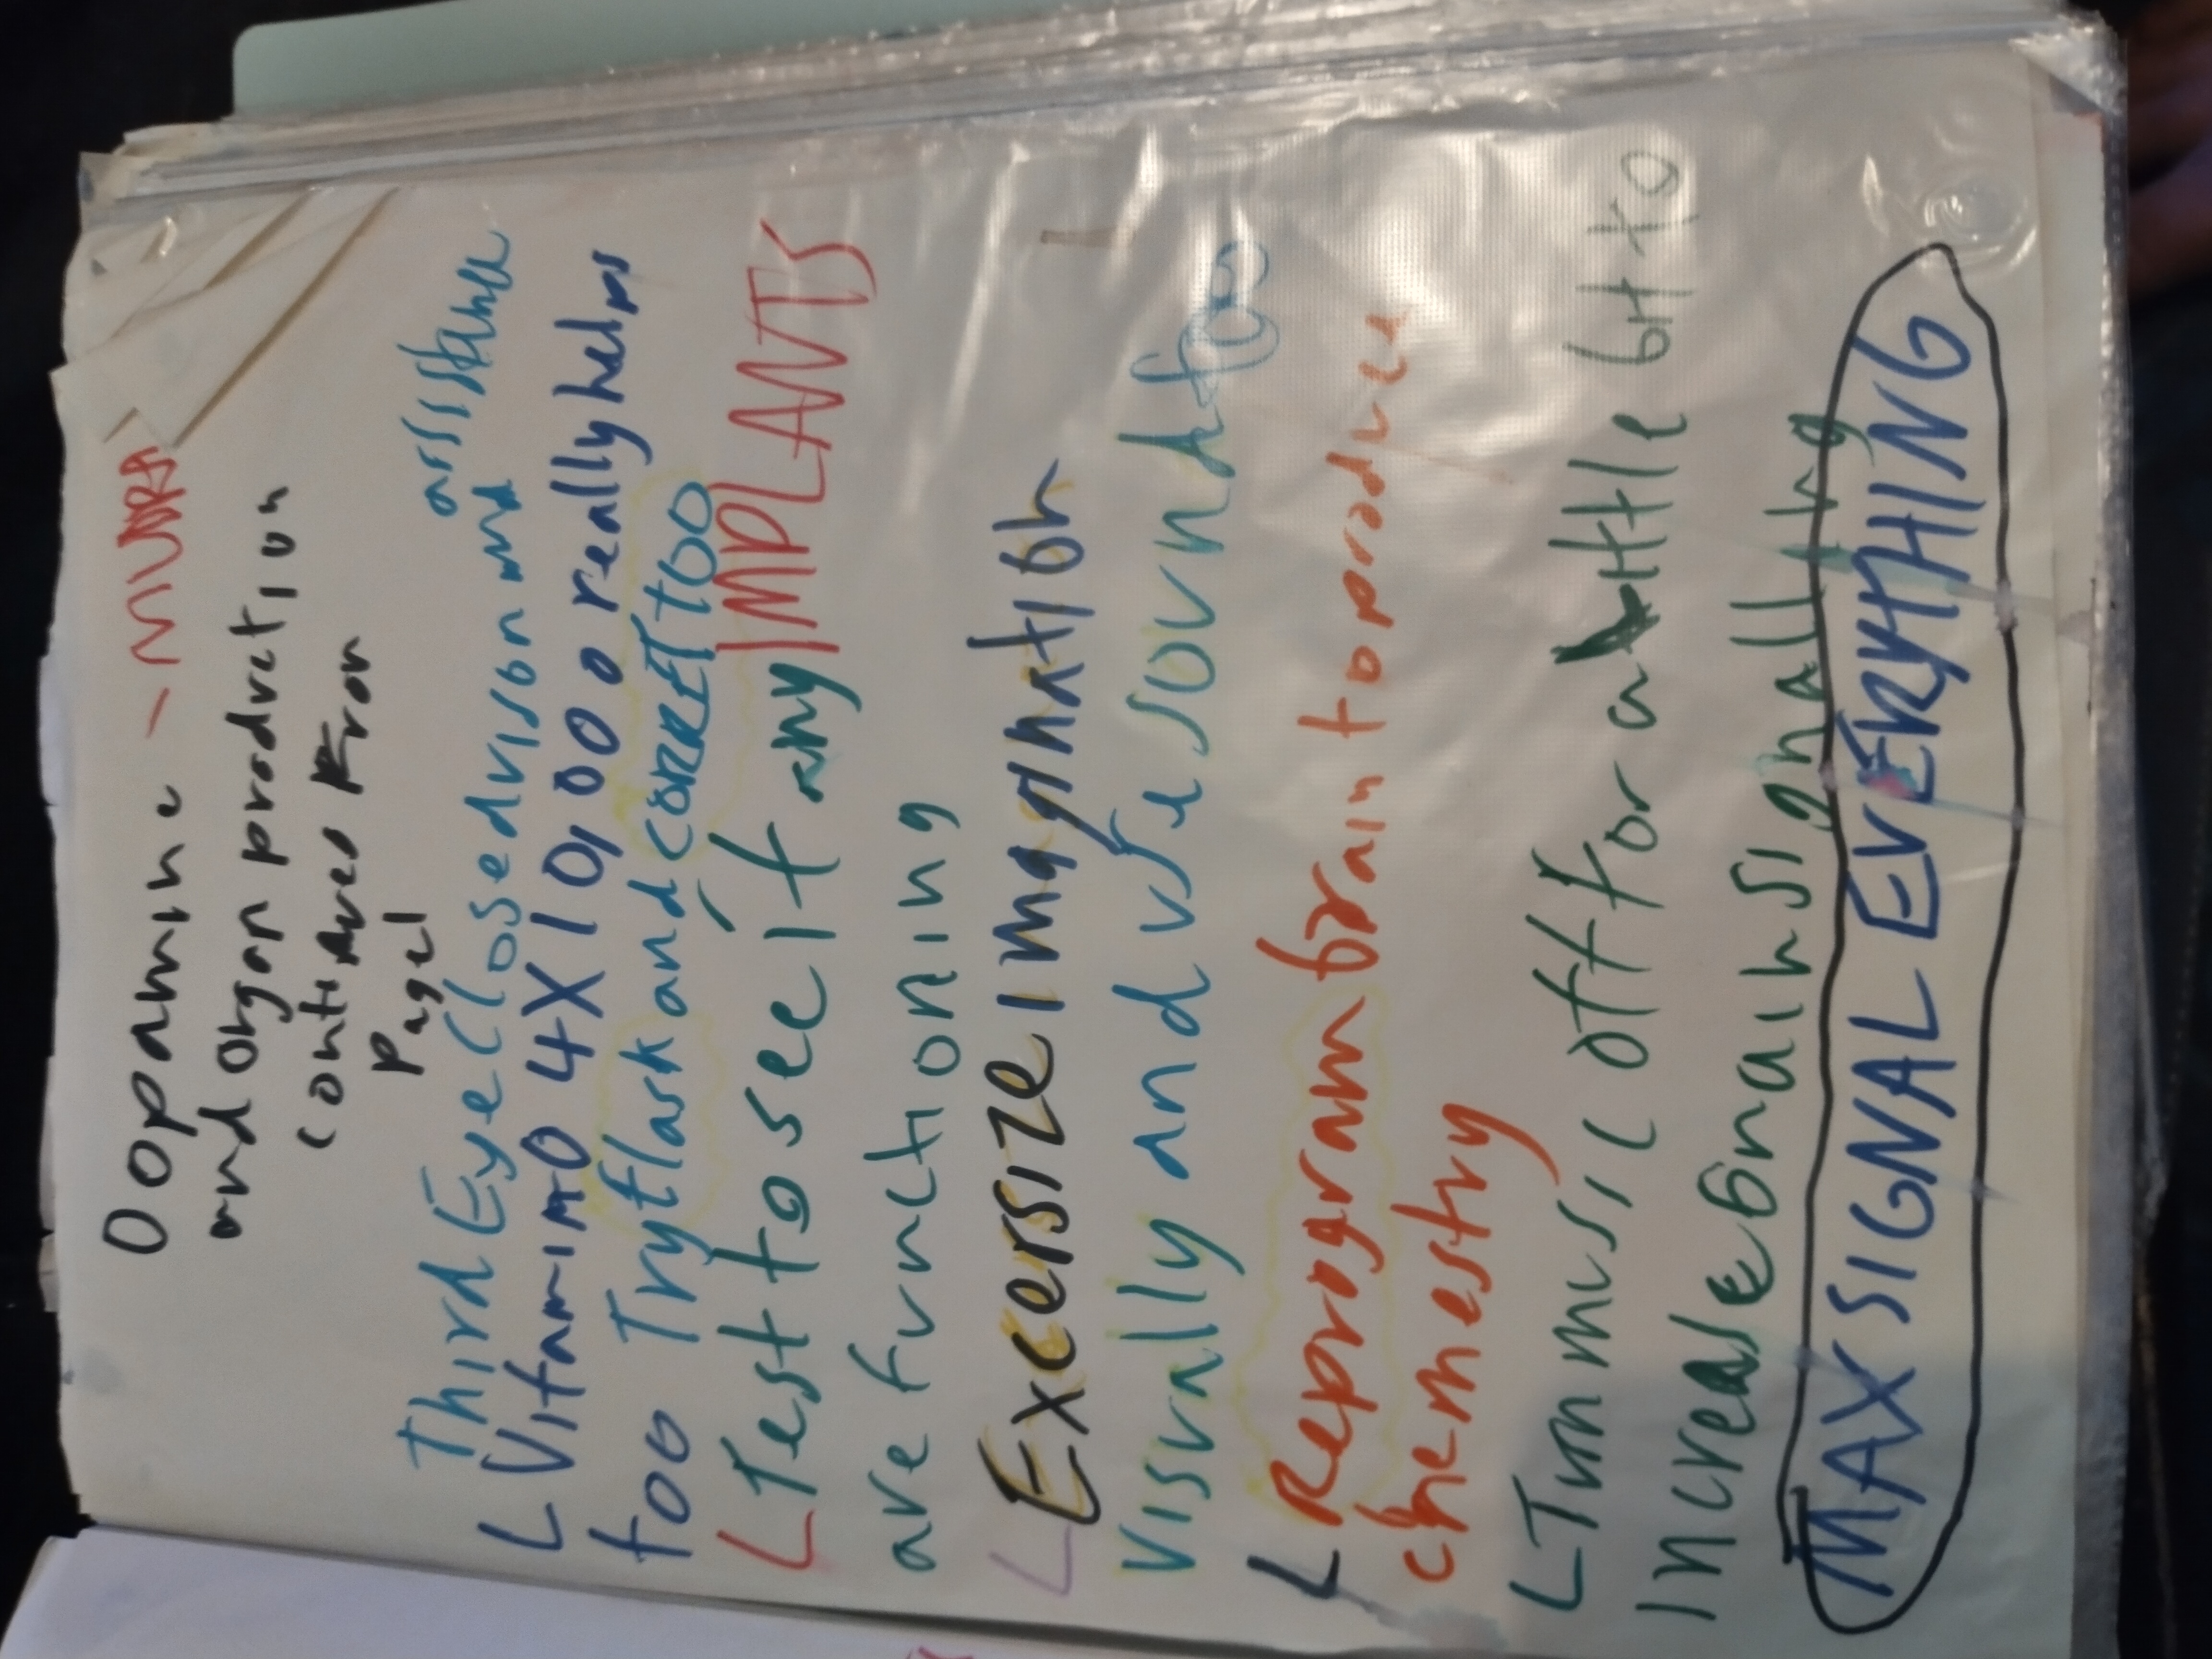 Dopamine -
and Organ production
continues From
Page 1
assistance
Third Eye Closed vison and
L Vitamin D 4X10,000 really helps
too Try flask and CORRECT too
L Test to see if any IMPLANTS
are functioning
L Excersize imagination
visually and use sound too
L Reprogram brain to produce
chemestry
L Turn music off for a little bit to
increase brain signalling
MAX SIGNAL EVERYTHING